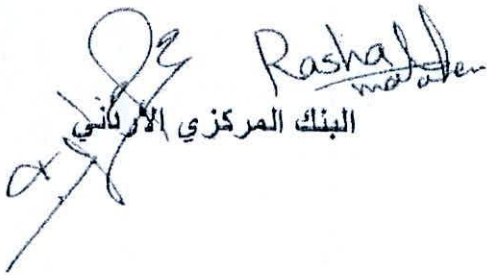 Rasha
البنك المركزي الأردني